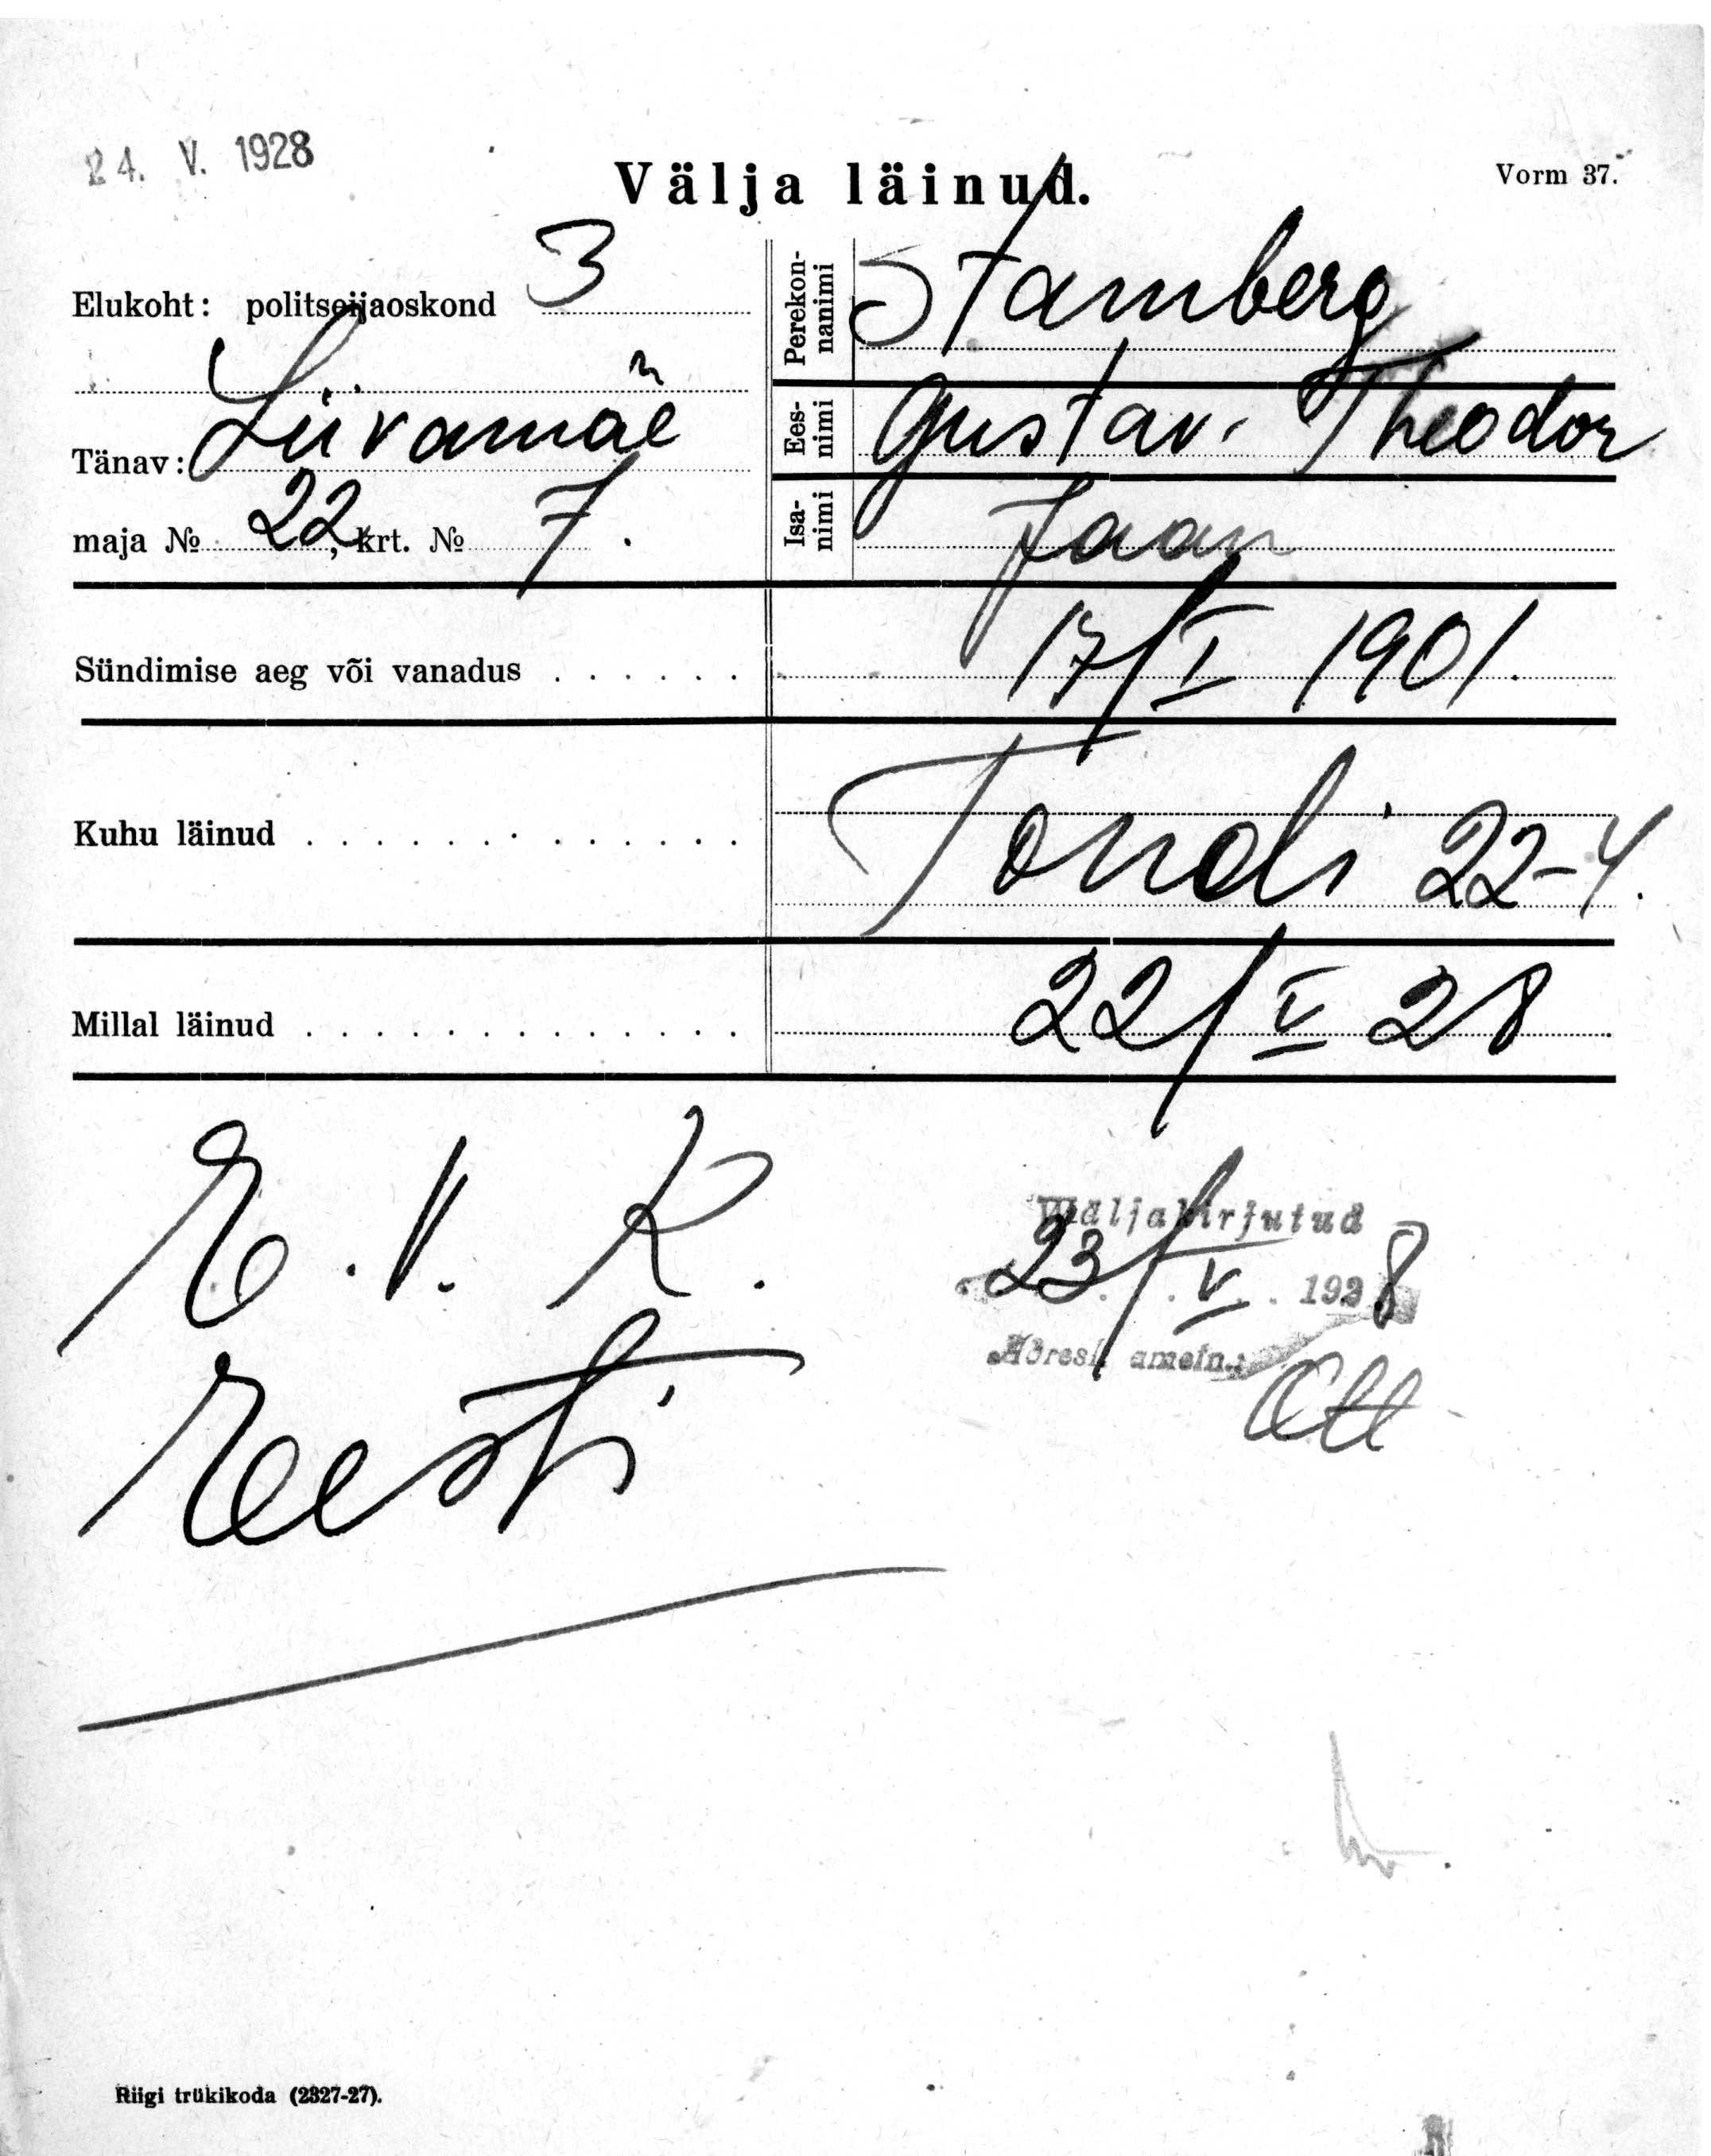 24. V. 1928
Välja läinud.
Vorm 37.
Elukoht: politseijaoskond 3
Tänav: Liivamäe
maja № 22, krt. № 7.
Perekon-
nanimi
Stamberg
Ees-
nimi
Gustav. Theodor
Isa-
nimi
Jaan
Sündimise aeg või vanadus . . . . . . . 17/I 1901.
Kuhu läinud . . . . . . . . . . . . . Tondi 22-4.
Millal läinud . . . . . . . . . . . . . 22/V 28
E. V. K.
Eesti
Wäljakirjutud
23/V 1928
Adresi ametn.:
Riigi trükikoda (2327-27).